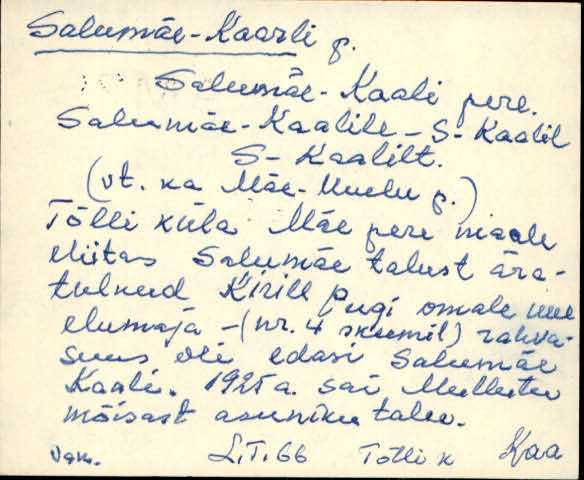 Salumäe-Kaarli p.
Salumäe-Kaali pere.
Salumäe-Kaalile - S-Kaalil
S-Kaalilt.
(vt. ka Mäe-Uuelu p.)
Tõlli küla Mäe pere maale
ehitas Salumäe talust ära-
tulnud Kirill Pugi omale uue
elumaja - (nr. 4 skeemil) rahva-
suus oli edasi Salumäe
Kaali. 1925 a. sai Mullutu
mõisast asuniku talu.
Van. L.T. 66 Tõlli k Kaa